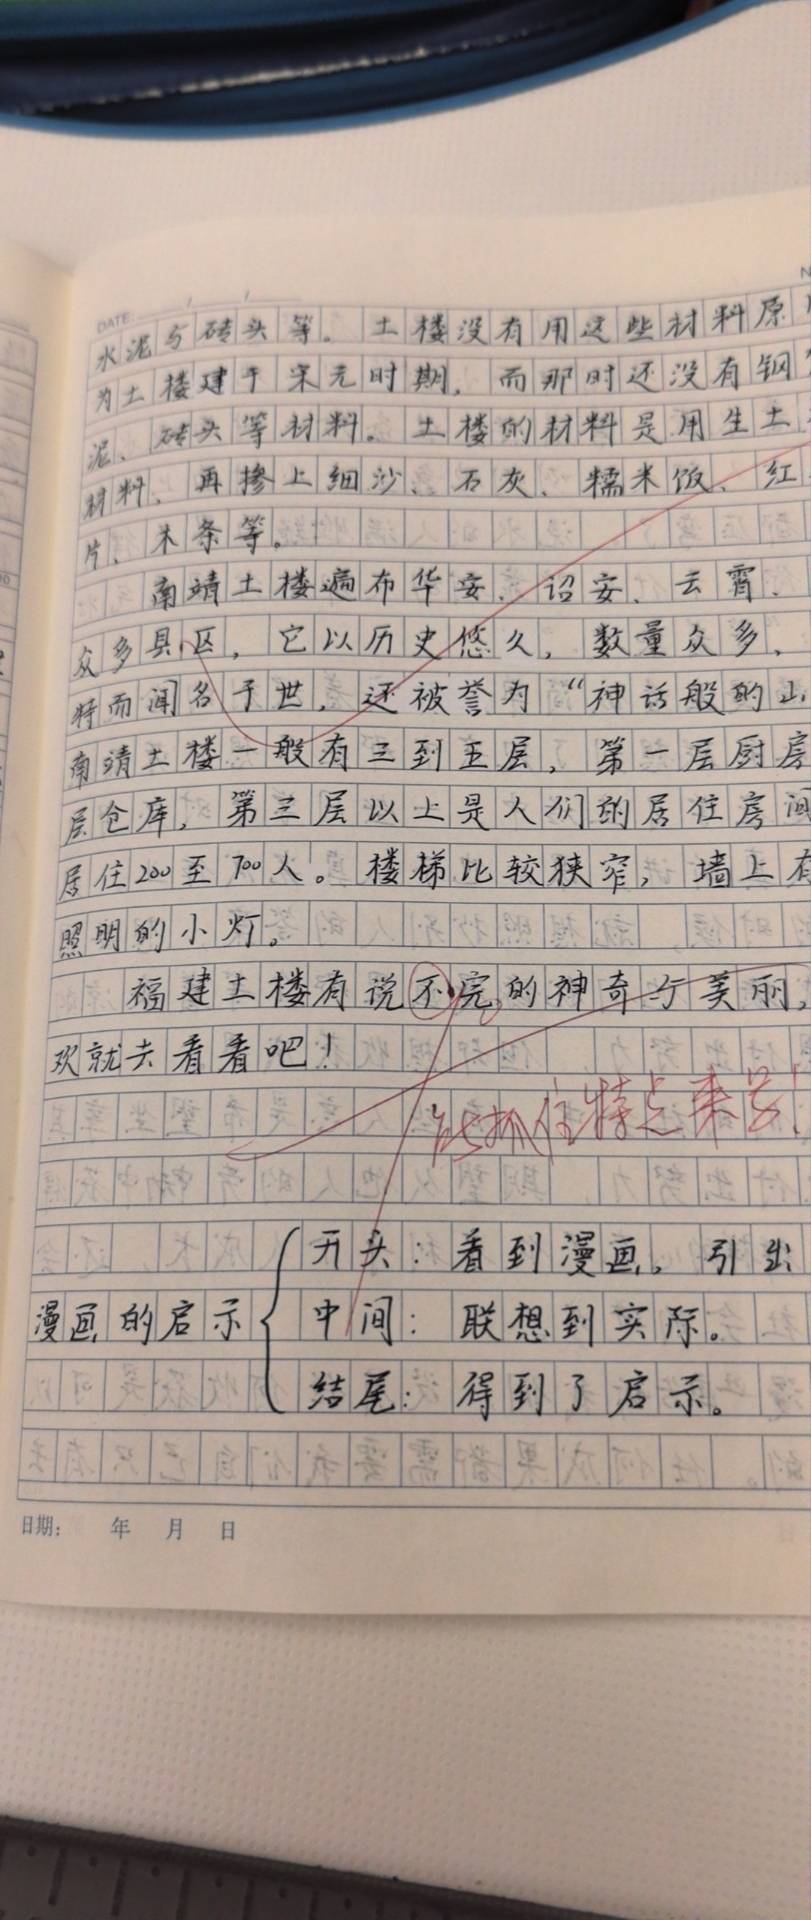 DATE: / /
水泥与砖头等。土楼没有用这些材料原
为土楼建于宋元时期，而那时还没有钢
泥、砖头等材料。土楼的材料是用生土
材料，再掺上细沙、石灰、糯米饭、红
片、木条等。
南靖土楼遍布华安、诏安、云霄、
众多县区，它以历史悠久，数量众多，
特而闻名于世，还被誉为“神话般的山
南靖土楼一般有三到五层，第一层厨房
层仓库，第三层以上是人们的居住房间
居住200至700人。楼梯比较狭窄，墙上有
照明的小灯。
福建土楼有说不完的神奇与美丽，
欢就去看看吧！
能抓住特点来写！
开头：看到漫画，引出
漫画的启示
中间：联想到实际。
结尾：得到了启示。
日期： 年 月 日